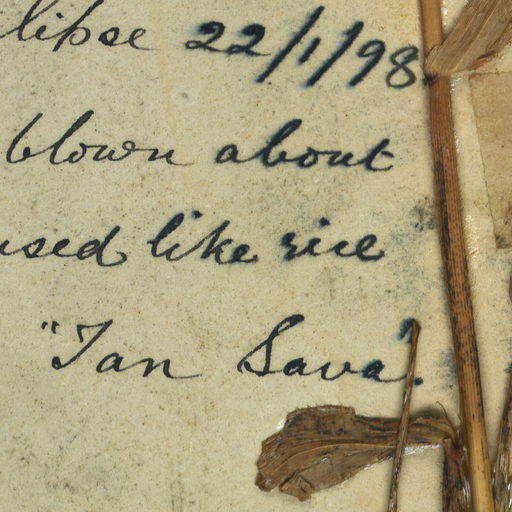 lipse 22/1/98.
blown about
used like rice
"Tan Sava".